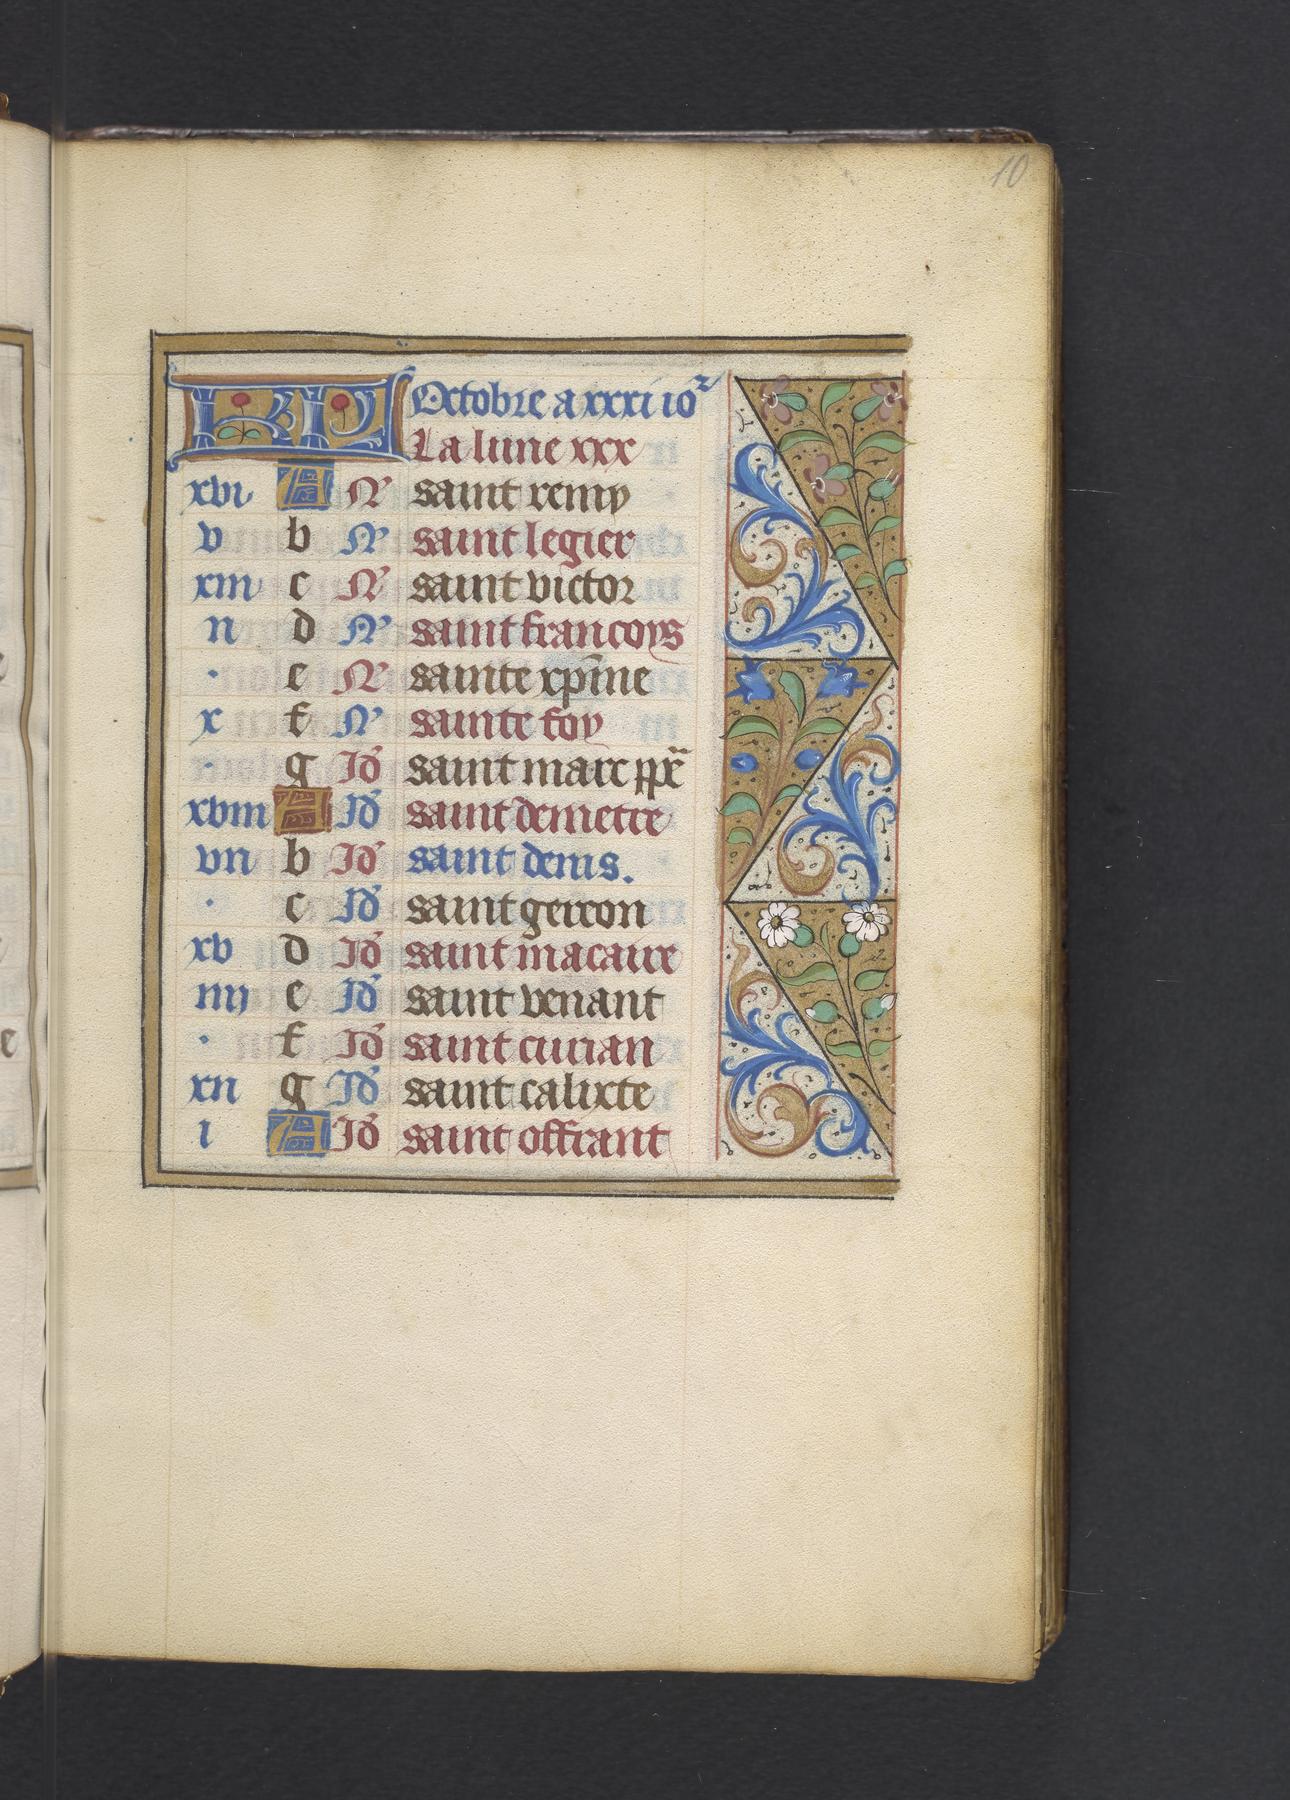 10
KL Octobre a xxxi ioꝛ
La lune xxx
xvi A N saint remy
v b N saint legier
xiii c N saint victor
ii d N saint francoys
· e N sainte xp̄ine
x f N sainte foy
· g Id saint marc ppẽ
xviii A Id saint demetre
vii b Id saint denis.
· c Id saint gereon
xv d Id saint macaire
iiii e Id saint venant
· f Id saint
xii g Id saint calixte
i A Id saint offrant
e